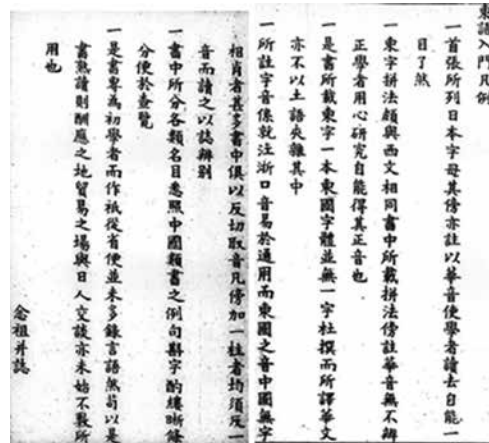 東語入門凡例
一首張所列日本字母其傍亦註以華音使學者讀去自能一
目了然
一東字拼法頗與西文相同書中所載拼法傍註華音無不辦
正學者用心研究自能得其正音也
一是書所載東字一本東國字體並無一字杜撰而所譯華文
亦不以土語夾雜其中
一所註字音係就江浙口音易於通用而東國之音中國無字
相肖者甚多書中俱以反切取音凡傍加一柱者均須反一
音而讀之以誌辦別
一書中所分各類名目悉照中國類書之例句斟字酌縷晰條
分便於查覽
一是書專為初學者而作祇從省便並未多錄言語然苟以是
書熟讀則酬應之地貿易之場與日人交談亦未始不敷所
用也
念祖并誌